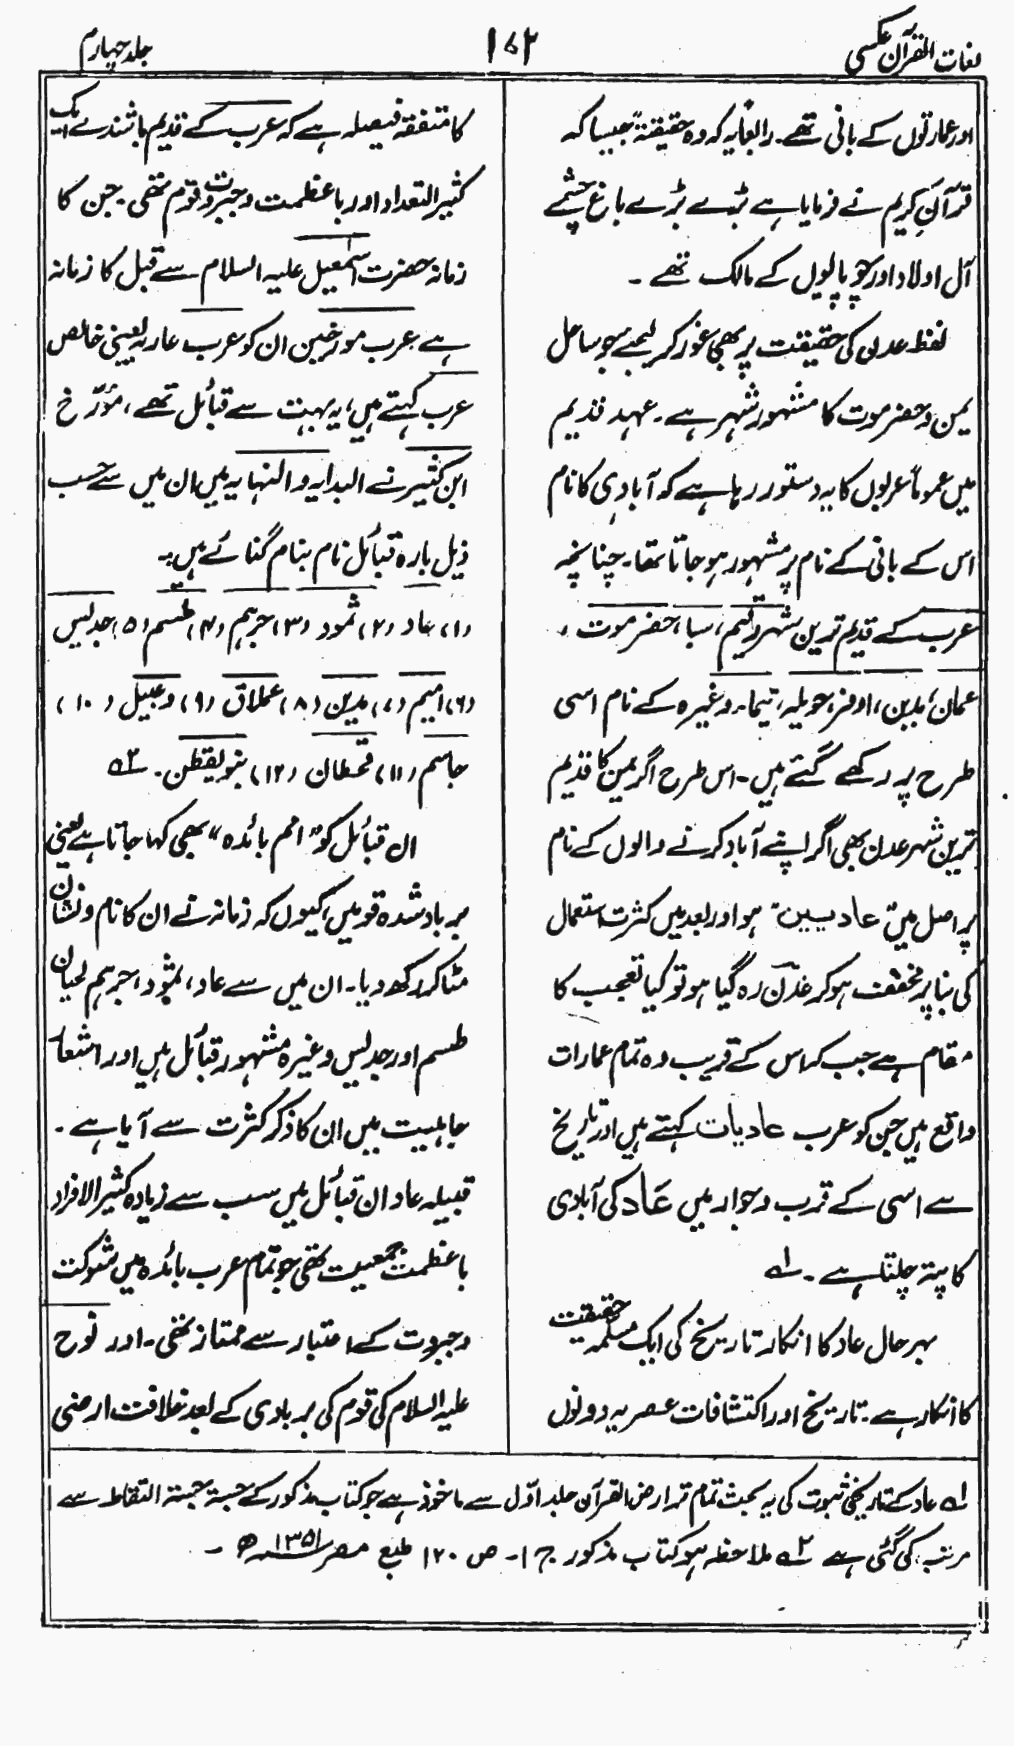 لغات القرآن عکسی
۱۷۲
جلد چہارم
اور عمارتوں کے بانی تھے۔ رابعاً یہ کہ وہ حقیقتہً جیسا کہ
قرآنِ کریم نے فرمایا ہے بڑے بڑے باغ چشمے
آل اولاد اور چوپالیوں کے مالک تھے ۔
لفظ عدن کی حقیقت پر بھی غور کر لیجئے جو ساحل
یمن و حضرموت کا مشہور شہر ہے۔ عہد قدیم
میں عموماً عربوں کا یہ دستور رہا ہے کہ آبادی کا نام
اس کے بانی کے نام پر مشہور ہو جاتا تھا۔ چنانچہ
عرب کے قدیم ترین شہر تریم، سبا، حضر موت ،
عمان، مدین، اوفر، حویلہ، تیما۔ وغیرہ کے نام اسی
طرح پر رکھے گئے ہیں۔ اس طرح اگر یمن کا قدیم
ترین شہر عدن بھی اگر اپنے آباد کرنے والوں کے نام
پر اصل میں عادیین ہو اور بعد میں کثرت استعمال
کی بنا پر مخفف ہو کر عدن رہ گیا ہو تو کیا تعجب کا
مقام ہے جب کہ اس کے قریب وہ تمام عمارات
واقع ہیں جن کو عرب عادیات کہتے ہیں اور تاریخ
سے اسی کے قرب وجوار میں عاد کی آبادی
کا پتہ چلتا ہے ۔ لہ
بہرحال عاد کا انکار تاریخ کی ایک مسلمہ حقیقت
کا انکار ہے۔ تاریخ اور اکتشافات عصریہ دونوں
کا متفقہ فیصلہ ہے کہ عرب کے قدیم باشندے ایک
کثیر التعداد اور باعظمت وجبروت قوم تھی جن کا
زمانہ حضرت اسمٰعیل علیہ السلام سے قبل کا زمانہ
ہے عرب مورخین ان کو عرب عاربہ یعنی خالص
عرب کہتے ہیں، یہ بہت سے قبائل تھے، مؤرّخ
ابن کثیر نے البدایہ والنہایہ میں ان میں سے حسب
ذیل بارہ قبائل نام بنام گنائے ہیں:۔
(۱) عاد (۲) ثمود (۳) جرہم (۴) طسم (۵) جدیس
(۶) امیم (۷) مدین (۸) عملاق (۹) وعبیل (۱۰)
جاسم (۱۱) قحطان (۱۲) بنو یقطن۔ ۲ہ
ان قبائل کو "امم بائدہ" بھی کہا جاتا ہے یعنی
برباد شدہ قومیں، کیوں کہ زمانہ نے ان کا نام و نشان
مٹا کر رکھ دیا۔ ان میں سے عاد، ثمود، جرہم لحیان
طسم اور جدیس وغیرہ مشہور قبائل ہیں اور اشعار
جاہلیت میں ان کا ذکر کثرت سے آیا ہے ۔
قبیلہ عاد ان قبائل میں سب سے زیادہ کثیر الافراد
باعظمت جمعیت تھی جو تمام عرب بائدہ میں شوکت
وجبروت کے اعتبار سے ممتاز تھی۔ اور نوح
علیہ السلام کی قوم کی بربادی کے بعد خلافت ارضی
لہ عاد کے تاریخی ثبوت کی یہ بحث تمام تر ارض القرآن جلد اوّل سے ماخوذ ہے جو کتاب مذکور کے جستہ جستہ التقاط سے
مرتب کی گئی ہے ۲ہ ملاحظہ ہو کتاب مذکور ج ۱۔ ص ۱۲۰ طبع مصر ۱۳۵۱ھ ۔